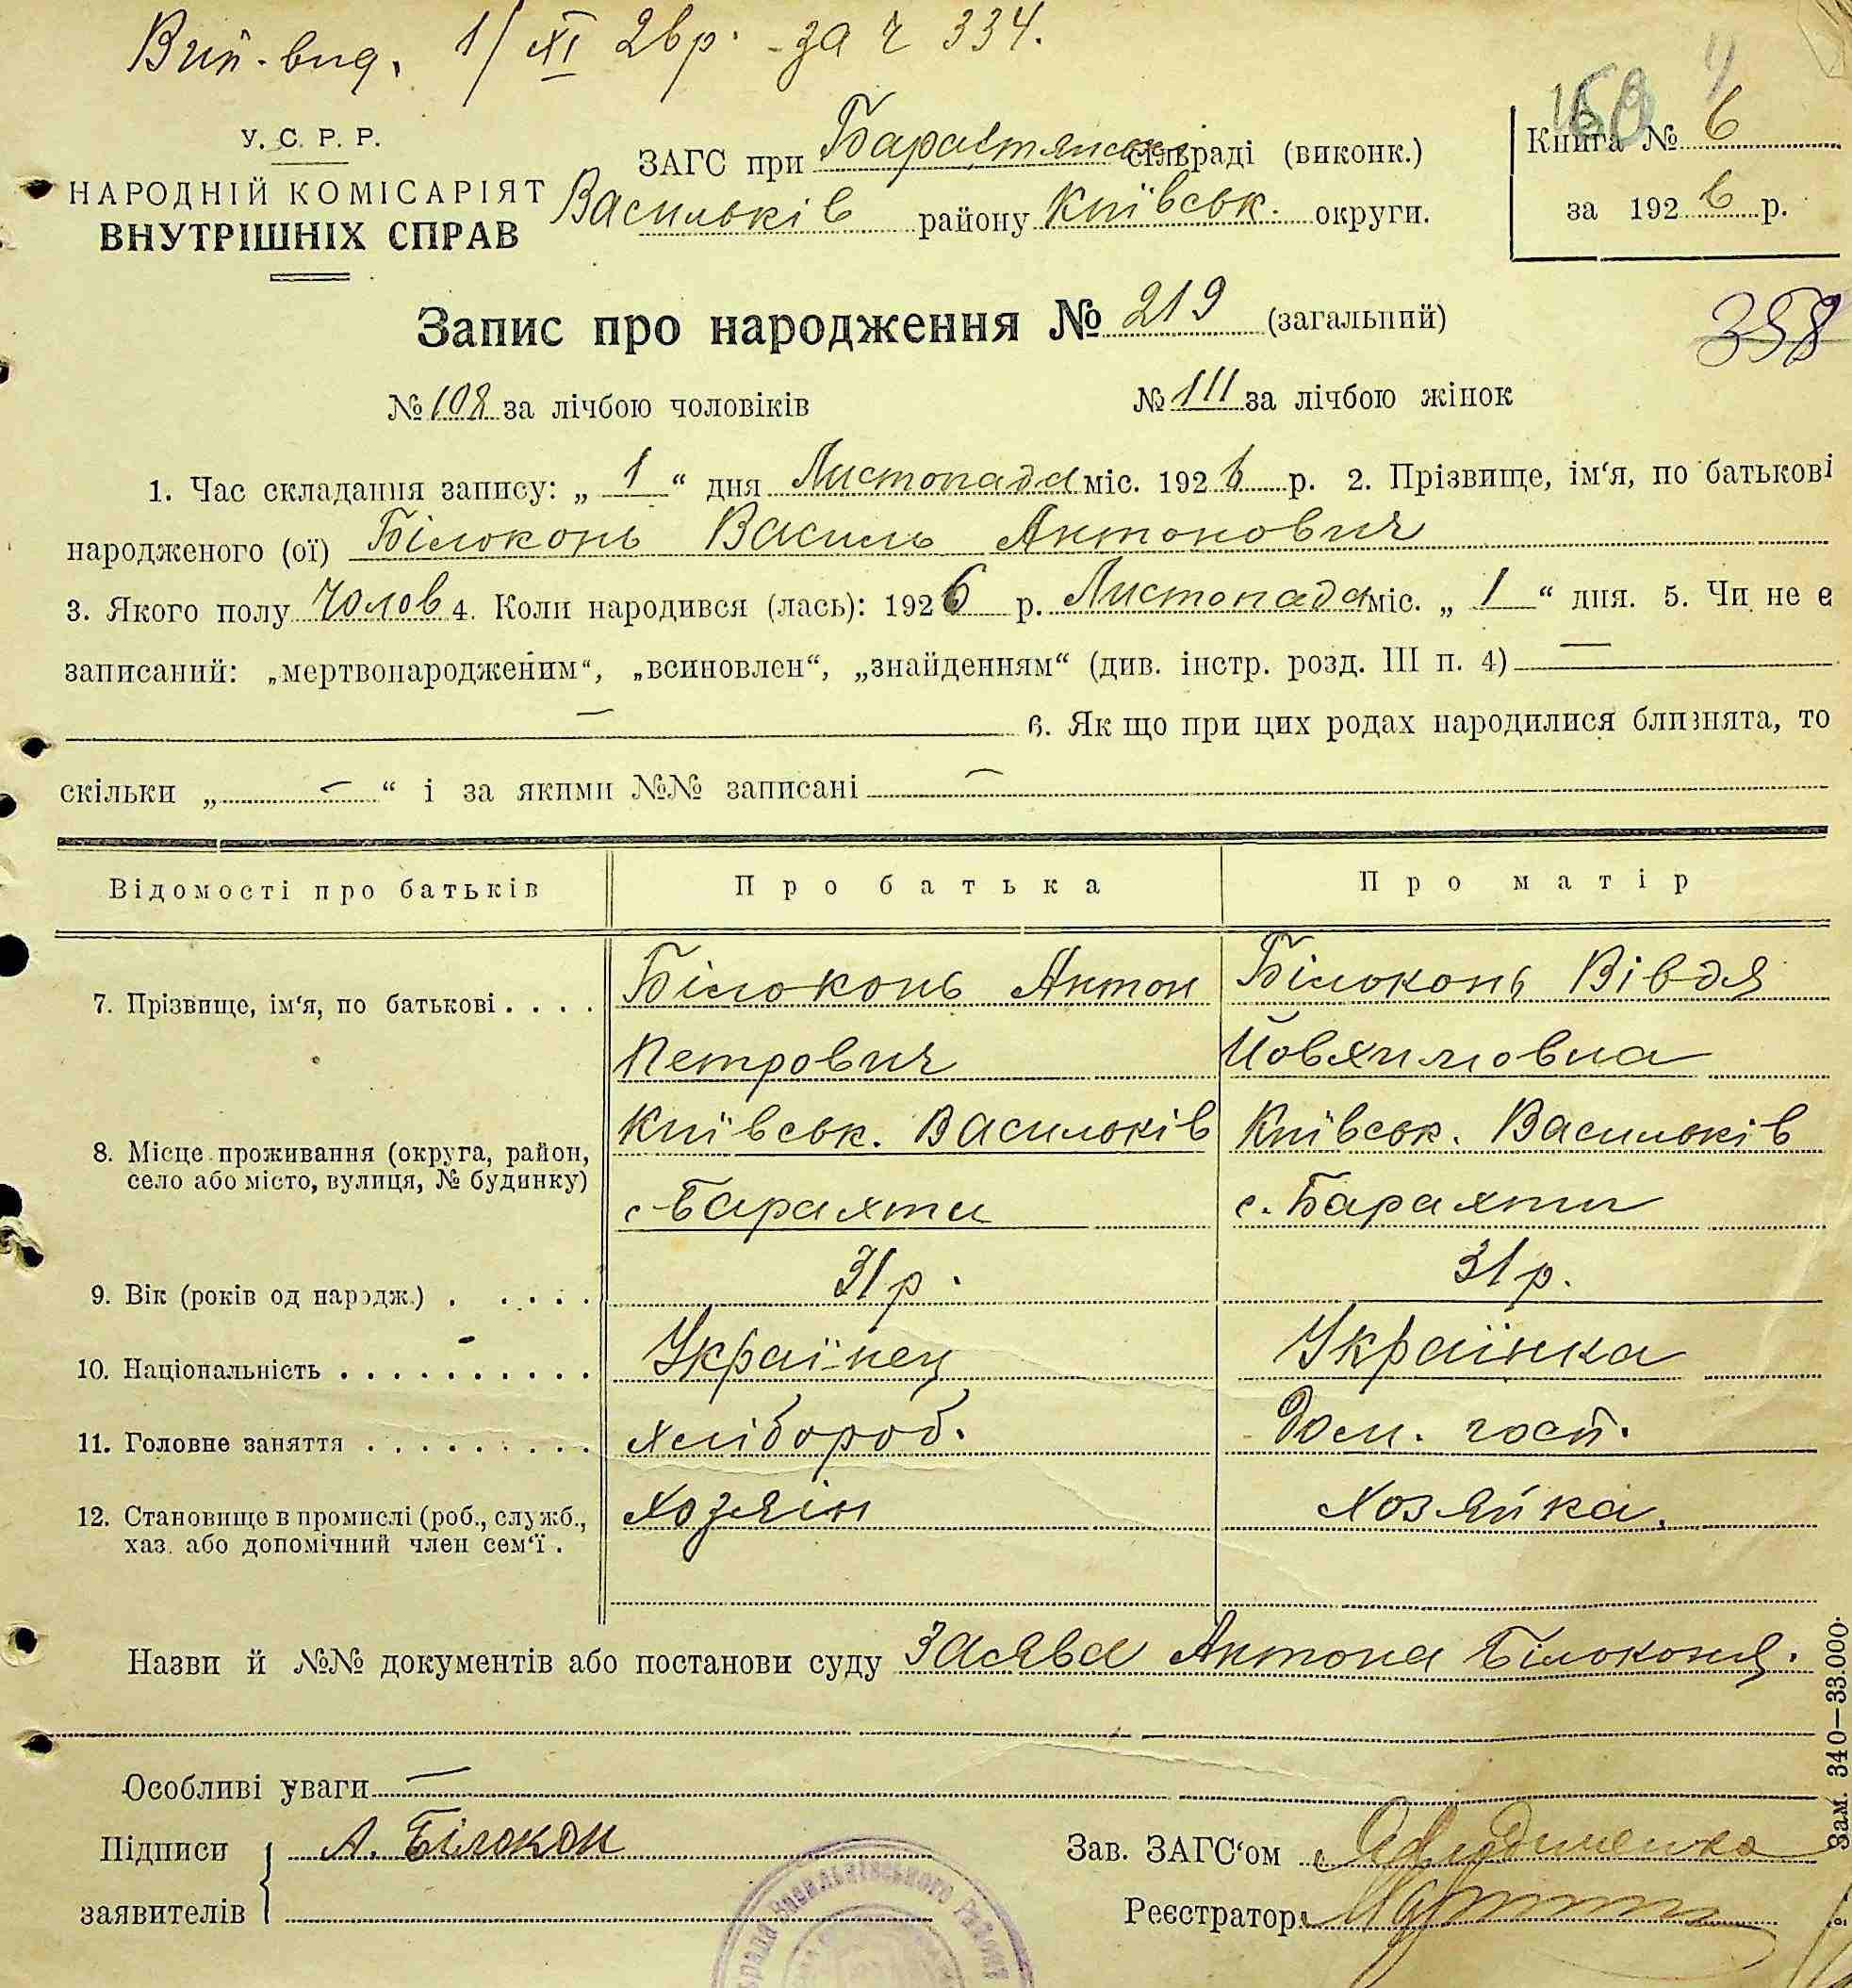 Вип. вид. 1/XI 26 р. за ч 334.
4
У. С. Р. Р.
НАРОДНІЙ КОМІСАРІЯТ
ВНУТРІШНІХ СПРАВ
ЗАГС при Барахтянські сільраді (виконк.)
Васильків району Київськ. округи.
Книга № 6
за 1926 р.
Запис про народження № 219 (загальний)
358
№ 108 за лічбою чоловіків № 111 за лічбою жінок
1. Час складання запису: „ 1 “ дня Листопада міс. 1926 р. 2. Прізвище, ім‘я, по батькові
народженого (ої) Білоконь Василь Антонович
3. Якого полу Чолов 4. Коли народився (лась): 1926 р. Листопада міс. „ 1 “ дня. 5. Чи не є
записаний: „мертвонародженим“, „всиновлен“, „знайденням“ (див. інстр. розд. III п. 4) —
— 6. Як що при цих родах народилися близнята, то
скільки „ — “ і за якими №№ записані —
Відомості про батьків Про батька Про матір
7. Прізвище, ім‘я, по батькові . . . . Білоконь Антон Білоконь Вівдя
Петрович Йовхимовна
8. Місце проживання (округа, район, Київськ. Васильків Київськ. Васильків
село або місто, вулиця, № будинку) с. Барахти с. Барахти
9. Вік (років од народж.) . . . . . 31 р. 31 р.
10. Національність . . . . . . . . . . Українец Українка
11. Головне заняття . . . . . . . . . Хлібороб. Дом. госп.
12. Становище в промислі (роб., служб., Хозяїн Хозяйка.
хаз. або допомічний член сем‘ї .
Назви й №№ документів або постанови суду Заява Антона Білоконя.
Особливі уваги —
Підписи А. Білокон
заявителів
Зав. ЗАГС‘ом
Реєстратор
Зам. 340—33.000.
Васильківського Району